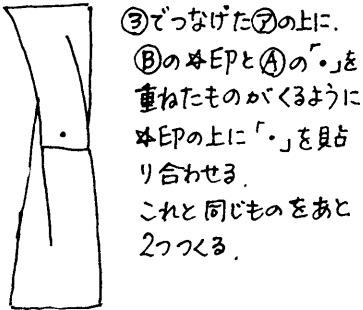 ③でつなげた㋐の上に.
Ⓑの☆印とⒶの「•」を
重ねたものがくるように
☆印の上に「•」を貼
り合わせる.
これと同じものをあと
2つつくる.